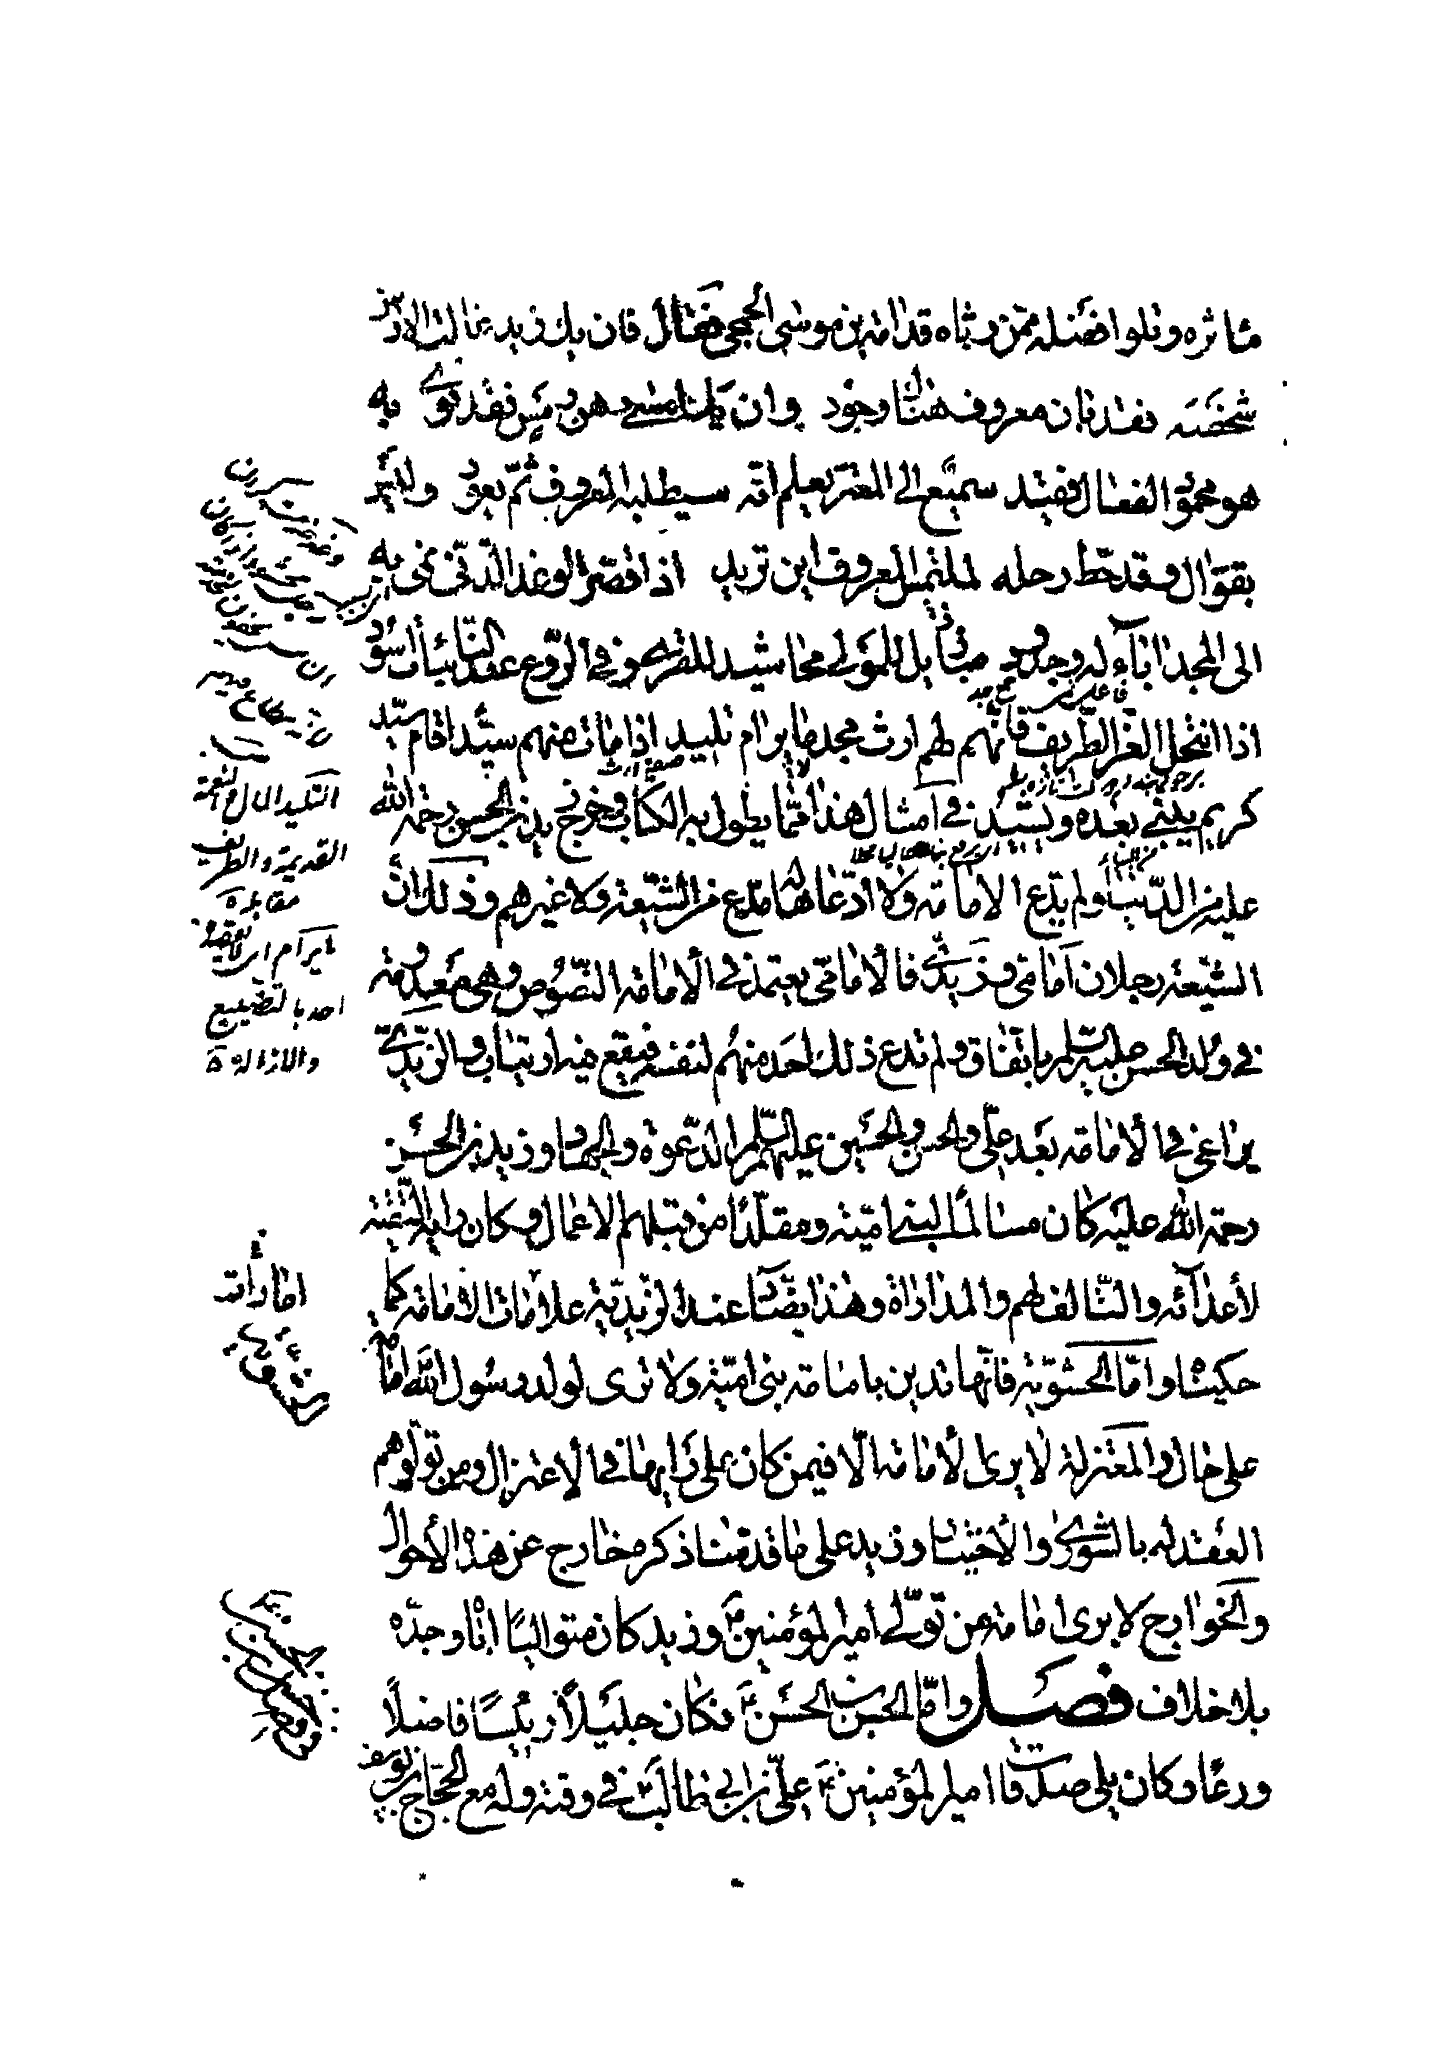 مآثره وتلوا فضله ممن رثاه قدامة بن موسى الجمحي فقال فان يك زيد غالت الارض
شخصه فقد بان معروف هناك وجود وان يك امسى رهن رمس فقد ثوى به
هو محمود الفعال فقيد سميع الى المعتر يعلم انه سيطلبه المعروف ثم يعود وليس
بقوال وقد حط رحله لملتمس المعروف اين تريد اذا قصر الوغد الدني نمى به
الى المجد اباء له وجدود مباذيل للمولى محاشيد للقرى وفي الروع عند النائبات اسود
اذا انتحل العز الطريف فانهم لهم ارث مجد ما يرام تليد اذا مات منهم سيد اقام سيد
كريم يبني بعده ويشيد في امثال هذا مما يطول به الكتاب وخرج زيد بن الحسن رحمة الله
عليه من الدنيا ولم يدع الامامة ولا ادعاها له مدع من الشيعة ولا غيرهم وذلك ان
الشيعة رجلان امامي وزيدي فالامامي يعتمد في الامامة النصوص وهي معدومة
في ولد الحسن عليه السلم باتفاق ولم يدع ذلك احد منهم لنفسه فيقع فيه ارتياب والزيدي
يراعي في الامامة بعد علي والحسن والحسين عليهم السلم الدعوة والجهاد وزيد بن الحسن
رحمة الله عليه كان مسالما لبني امية ومقلدا من قبلهم الاعمال وكان رايه التقية
لأعدائه والتالف لهم والمداراة وهذا يضاد عند الزيدية علامات الامامة كما
حكيناه واما الحشوية فانها تدين بامامة بني امية ولا ترى لولد رسول الله امامة
على حال والمعتزلة لا يرى الامامة الا فيمن كان على رايها في الاعتزال ومن تولوهم
العقد له بالشورى والاختيار وزيد على ما قدمنا ذكره خارج عن هذه الأحوال
والخوارج لا يرى امامة من تولى امير المؤمنين ع وزيد كان متواليا اباه وجده
بلا خلاف فصل واما الحسن بن الحسن ع فكان جليلا رئيسا فاضلا
ورعا وكان يلي صدقات امير المؤمنين ع علي بن ابي طالب ع في وقته وله مع الحجاج بن يوسف
التليد المال
القديمة والطريف
مقابله
ما يرام اي لا يقصده
احد بالتضييع
والازاله